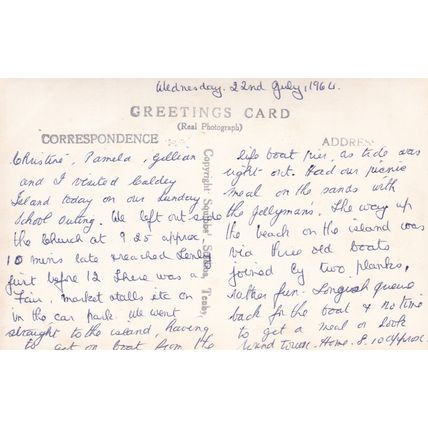 Wednesday. 22nd July, 1964.
GREETINGS CARD
(Real Photograph)
CORRESPONDENCE
ADDRES
Christine, Pamela, Gillian
and I visited Caldey
Island today on our Sunday
School Outing. We left outside
the Church at 9.25 approx.
10 mins late reached Tenby
just before 12. There was a
Fair, market stalls etc on
in the car park. We went
straight to the island, having
to get on boat from the
Copyright Squibbs' Studios, Tenby.
life boat pier, as tide was
right out. Had our picnic
meal on the sands with
the Jellyman's. The way up
the beach on the island was
via three old boats
joined by two planks,
rather fun. Longish queue
back for the boat & no time
to get a meal or look
round town. Home 8.10 approx.